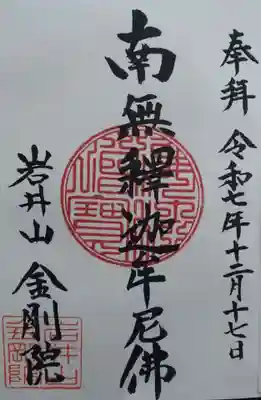 奉拝 令和七年十二月十七日
南無釋迦牟尼佛
岩井山 金剛院